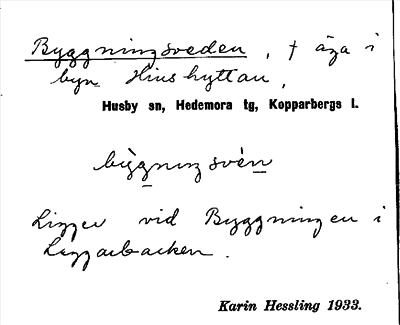 Byggningsveden, † äga i
byn Hinshyttan,
Husby sn, Hedemora tg, Kopparbergs l.
bỳgningsvèn
Ligger vid Byggningen i
Laggarbacken.
Karin Hessling 1933.